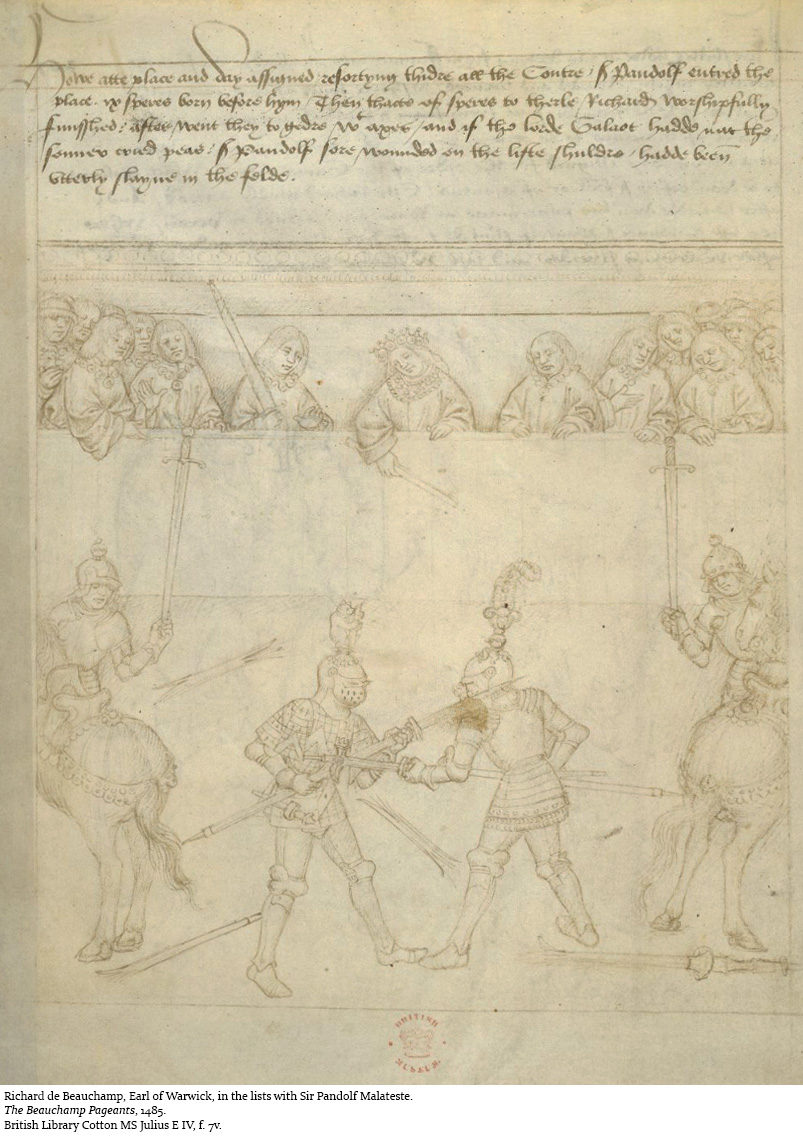 Howe atte place and day assigned resortyng thidre all the Contre / Sr Pandolf entred the
place . ix speres born before hym / Then thacte of speres to therle Richard worshipfully
finisshed / after went they to gedre wt axes / and if the lorde Galaot hadde nat the
sonner cried peas / Sr Pandolf sore wounded on the lifte shuldre / hadde been
vtterly slayne in the felde .
BRITISH
MUSEUM
Richard de Beauchamp, Earl of Warwick, in the lists with Sir Pandolf Malateste.
The Beauchamp Pageants, 1485.
British Library Cotton MS Julius E IV, f. 7v.